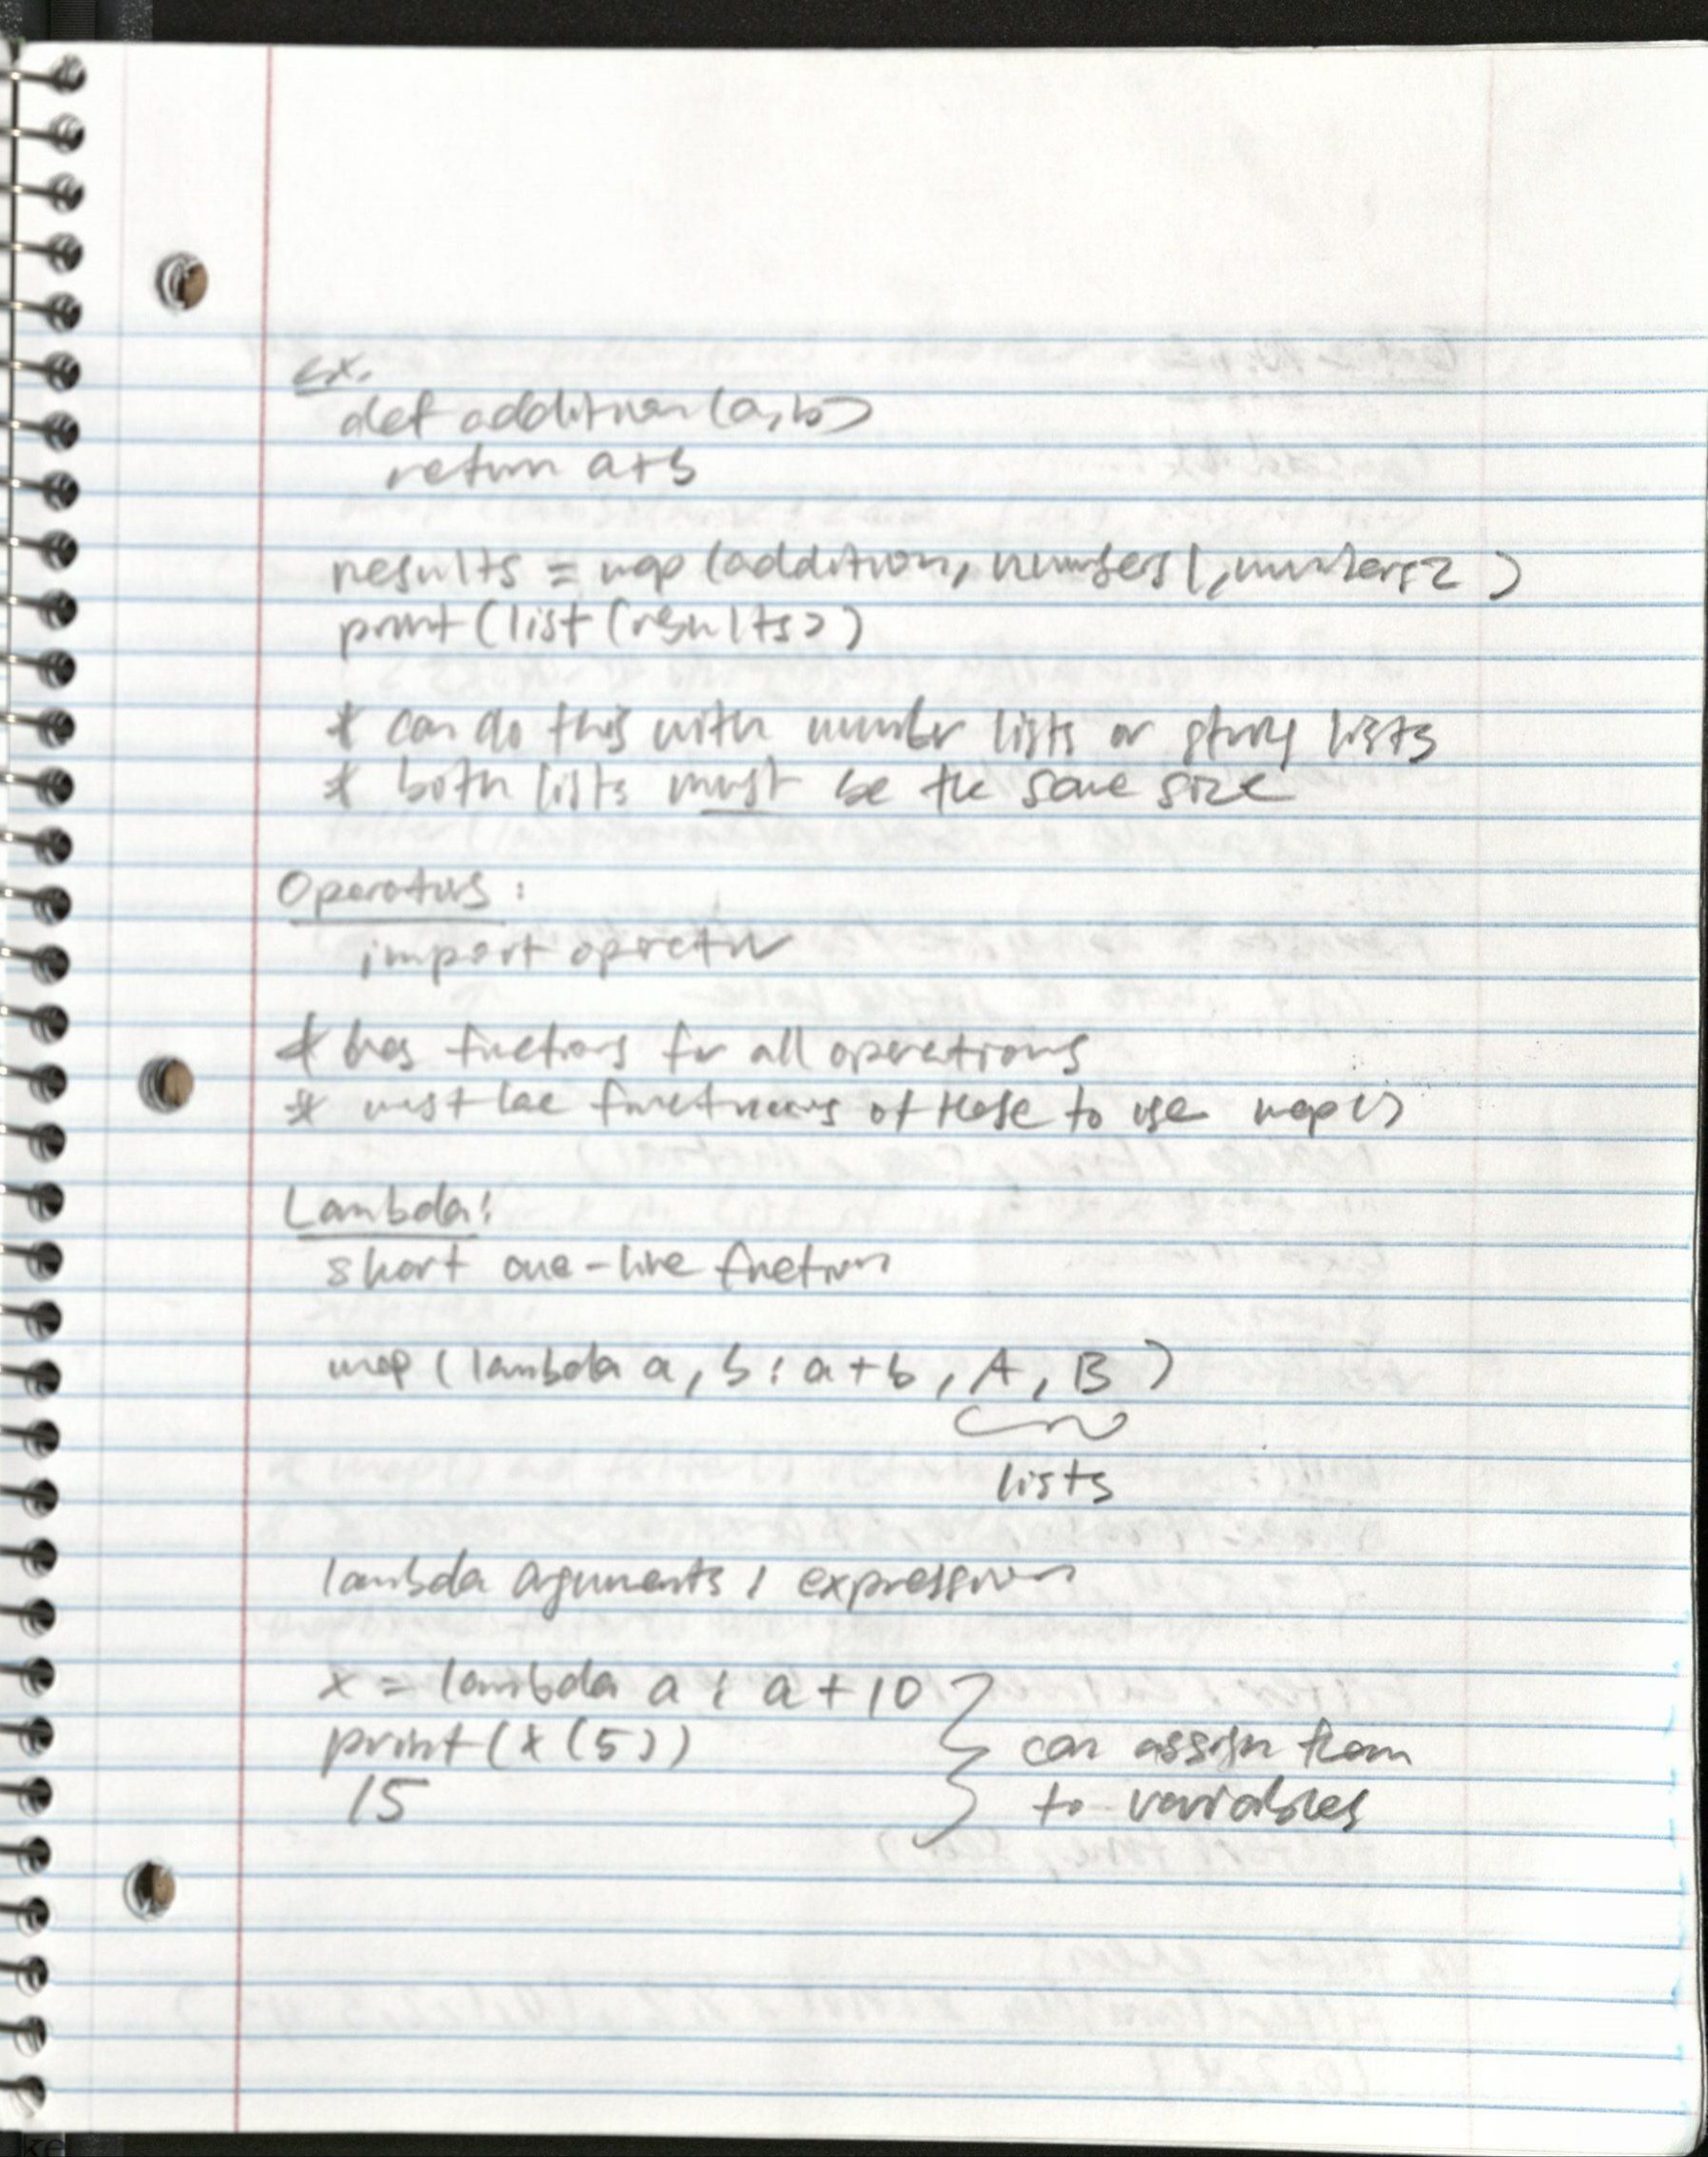 ex.
def addition(a,b)
return a+b
results = map(addition, numbers1, numbers2)
print(list(results))
* can do this with number lists or string lists
* both lists must be the same size
Operators:
import operator
* has functions for all operations
* must use functions of these to use map()
Lambda:
short one-line function
map(lambda a, b: a+b, A, B)
lists
lambda arguments : expression
x = lambda a : a + 10
print(x(5))
15
can assign them
to variables